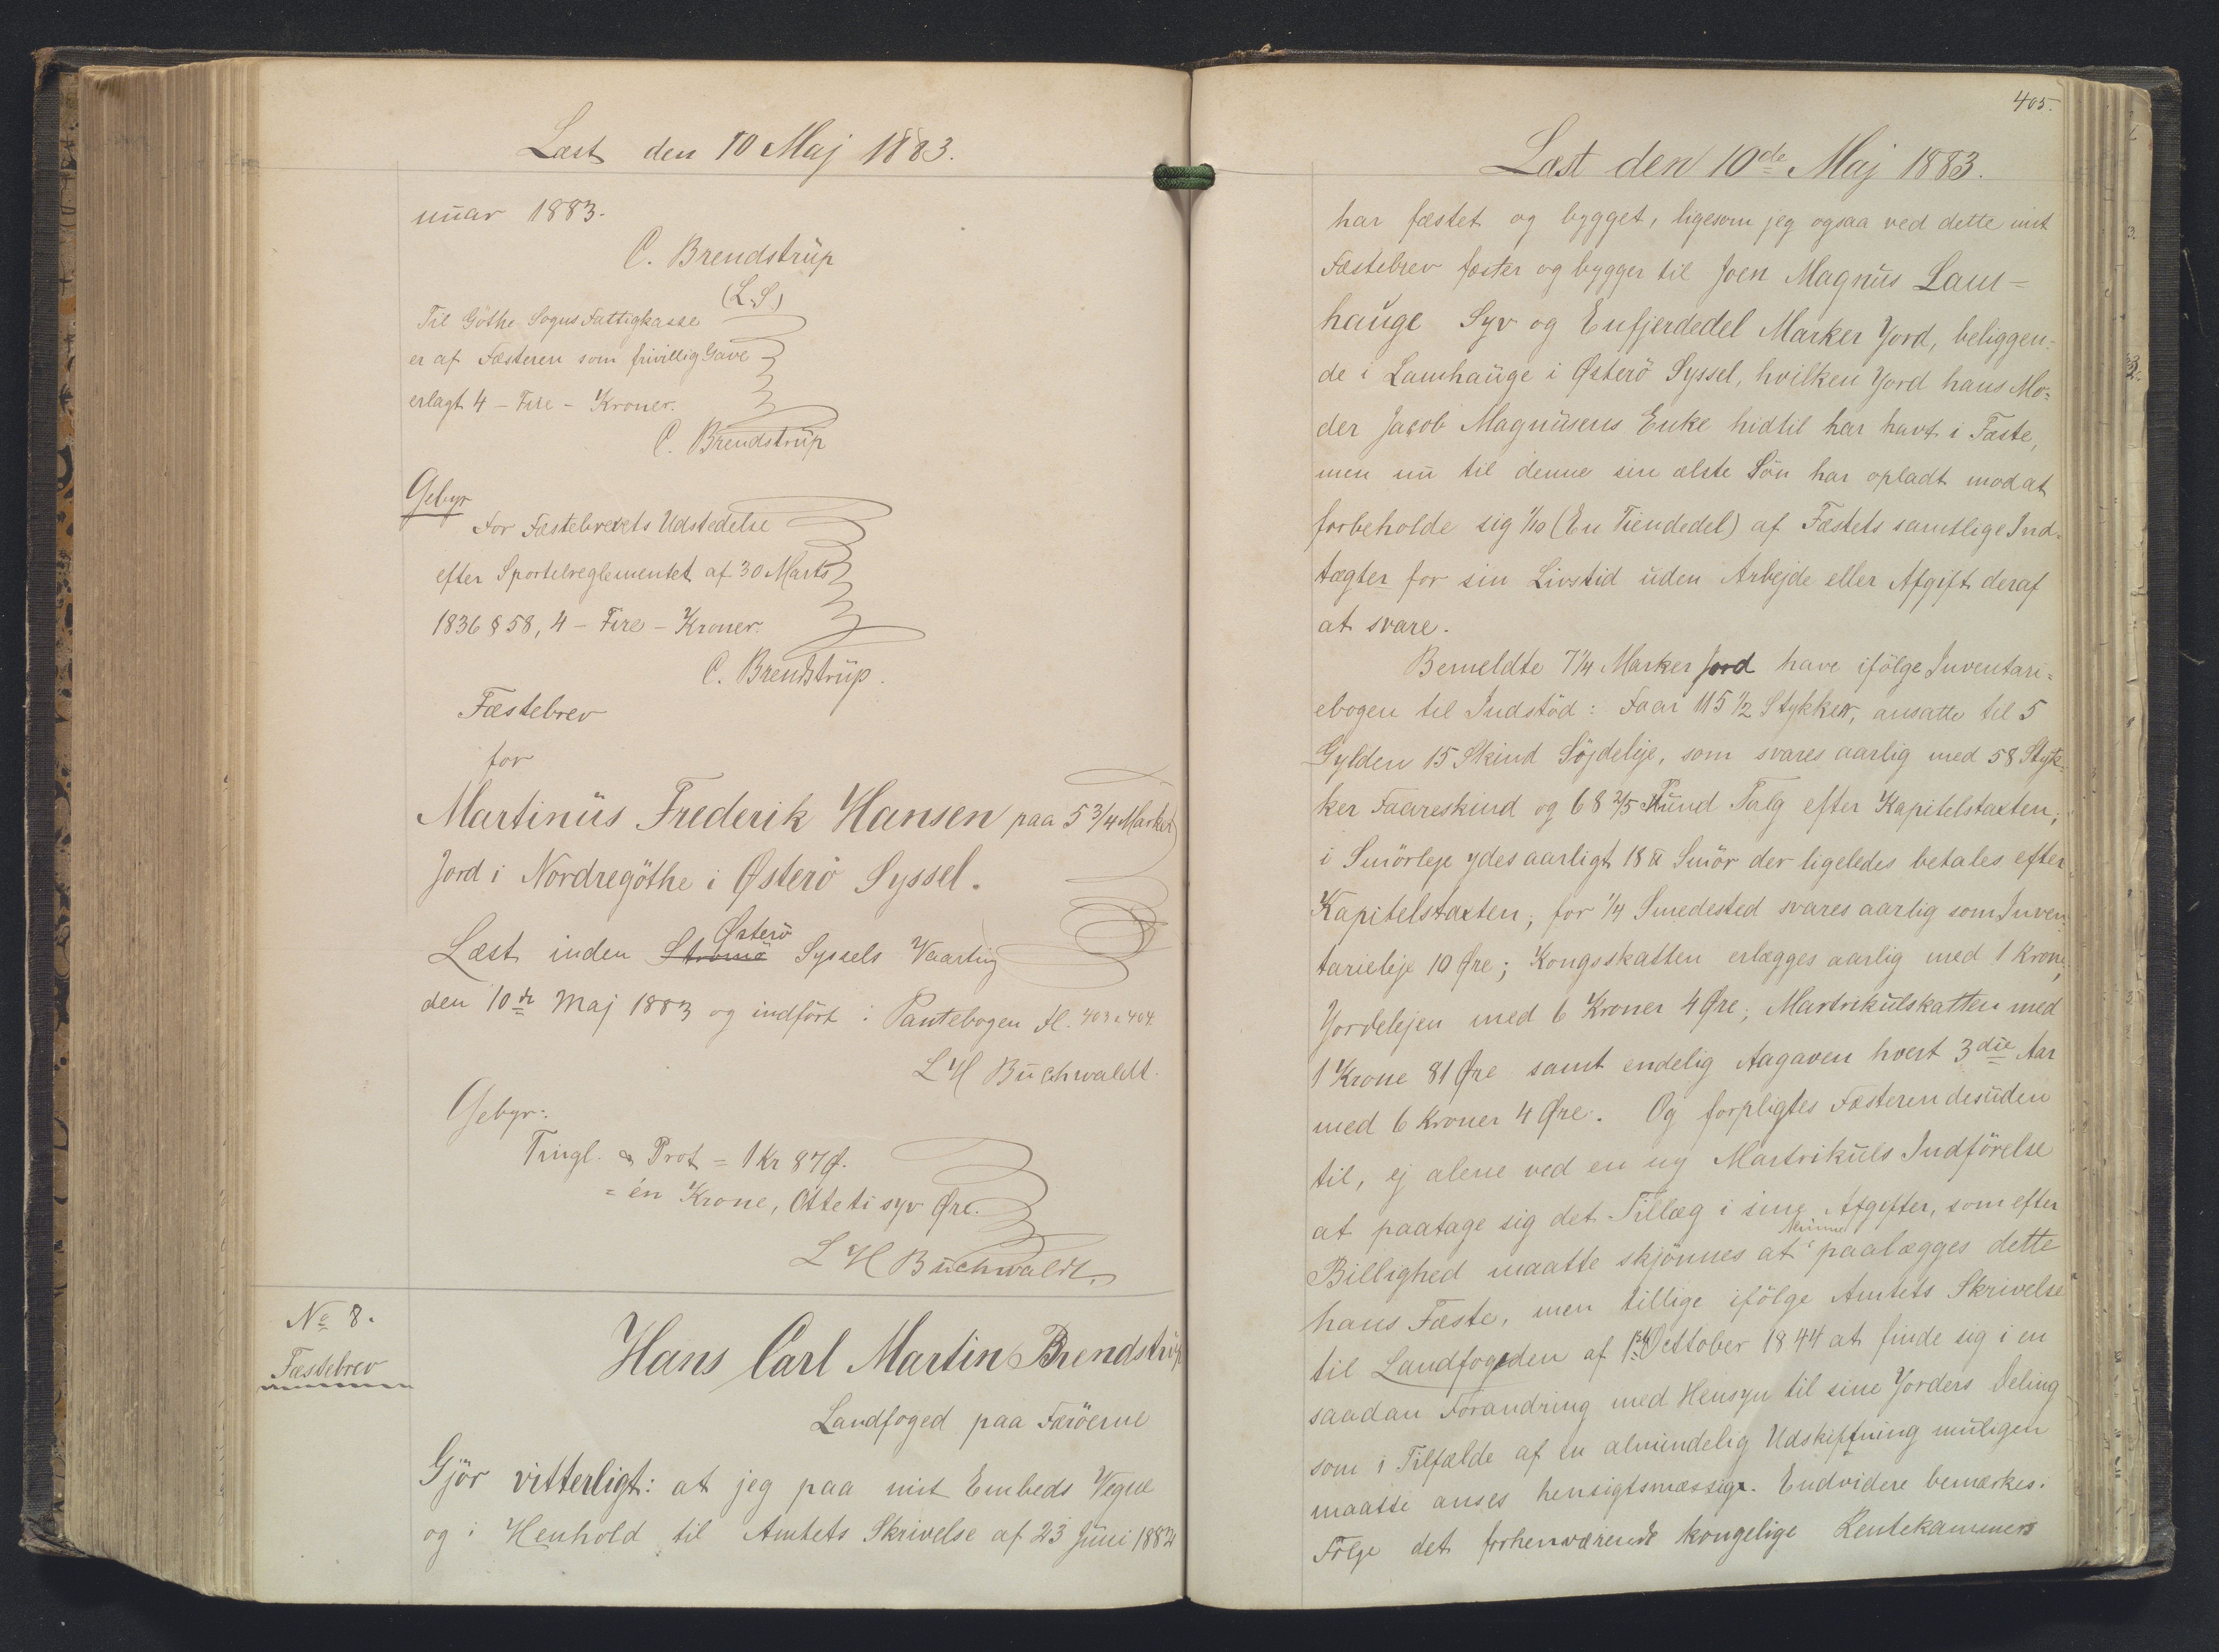 Læst den 10 Maj 1883.
nuar 1883.
C. Brendstrüp
(L.S.)
Til Göthe Sogns Fattigkasse
er af Fæsteren som frivillig Gave
erlagt 4 - Fire - Kroner.
C. Brendstrüp
Gebyr
For Fæstebrevets Udstedelse
efter Sportelreglementet af 30 Marts
1836 § 58, 4 - Fire - Kroner.
C. Brendstrüp.
Fæstebrev
for
Martinüs Frederik Hansen paa 5 3/4 Marker
Jord i Nordregöthe i Østerö Syssel.
Østerö
Læst inden Strömö Syssels Vaarting
den 10de Maj 1883 og indført i Pantebogen fl. 403 & 404.
L H Büchwaldt.
Gebyr:
Tingl. & Prot = 1 Kr 87 Ø.
= én Krone, Otteti syv Øre.
L H Büchwaldt.
No 8.
Fæstebrev
Hans Carl Martin Brendstrüp
Landfoged paa Færöerne
Gjör vitterligt: at jeg paa mit Embeds Vegne
og i Henhold til Amtets Skrivelse af 23 Jüni 1882
405.
Læst den 10de Maj 1883.
har fæstet og bygget, ligesom jeg ogsaa ved dette mit
Fæstebrev fæster og bygger til Joen Magnüs Lam-
haüge Syv og Enfjerdedel Marker Jord, beliggen-
de i Lamhaüge i Østerö Syssel, hvilken Jord hans Mo-
der Jacob Magnüsens Enke hidtil har havt i Fæste,
men nü til denne sin ælste Sön har opladt mod at
forbeholde sig 1/10 (En Tiendedel) af Fæstets samtlige Ind-
tægter for sin Livstid üden Arbejde eller Afgift deraf
at svare.
Bemeldte 7 1/4 Marker Jord have ifölge Inventari-
ebogen til Indstöd: Faar 115 1/2 Stykker, ansatte til 5
Gylden 15 Skind Söjdeleje, som svares aarlig med 58 Styk-
ker Faareskind og 68 2/5 Pünd Talg efter Kapitelstaxten;
i Smörleje ydes aarligt 18 ℔ Smör der ligeledes betales efter
Kapitelstaxten; for 1/4 Smedested svares aarlig som Inven-
tarieleje 10 Øre; Kongsskatten erlægges aarlig med 1 Krone;
Jordelejen med 6 Kroner 4 Øre; Martrikülskatten med
1 Krone 81 Øre samt endelig Aagaven hvert 3die Aar
med 6 Kroner 4 Øre. Og forpligtes Fæsteren desüden
til, ej alene ved en ny Martriküls Indförelse
at paatage sig det Tillæg i sine Afgifter, som efter
kunne
Billighed maatte skjönnes at paalægges dette
hans Fæste, men tillige ifölge Amtets Skrivelse
til Landfogden af October 1844 at finde sig i en
saadan Forandring med Hensyn til sine Jorders Deling
som i Tilfælde af en almindelig Udskiftning müligen
maatte anses hensigtsmæssig. Endvidere bemærkes.
Fölge det forhenværende kongelige Rentekammers